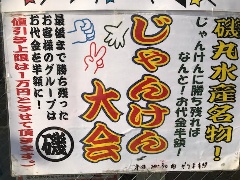 磯丸水産名物！
じゃんけんに勝ち残れば
なんと！お代金半額！
じゃんけん
大会
最後まで勝ち残った
お客様のグループは
お代金を半額に！
値引き上限は1万円とさせて頂きます。
磯